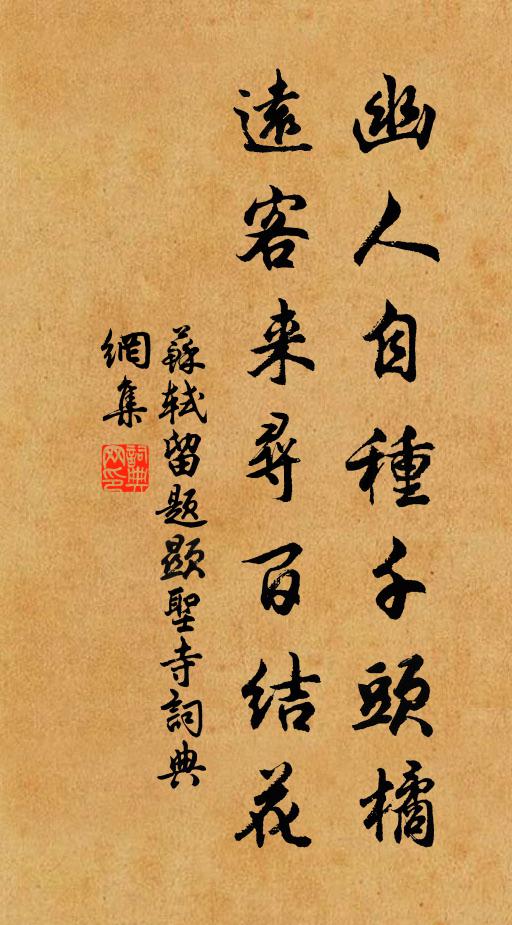 幽人自種千頭橘
遠客来尋百結花
蘇軾留题顯聖寺詞典
網集
詞典網印